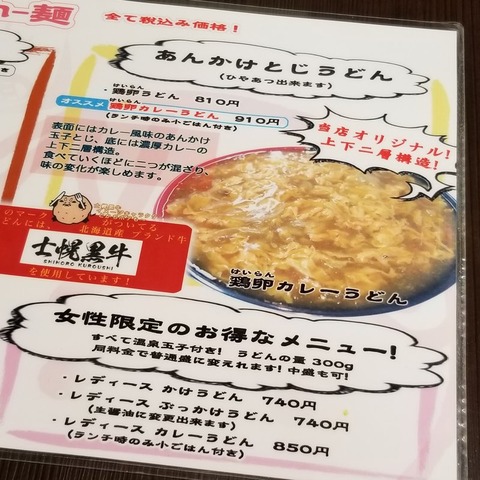 カレー麺
全て税込み価格！
あんかけとじうどん
(ひやあつ出来ます)
けいらん
・鶏卵うどん 810円
オススメ
けいらん
鶏卵カレーうどん 910円
(ランチ時のみ小ごはん付き)
表面にはカレー風味のあんかけ
玉子とじ、底には濃厚カレーの
上下二層構造。
食べていくほどに二つが混ざり、
味の変化が楽しめます。
当店オリジナル！
上下二層構造！
のマークがついてる
どんには、北海道産 ブランド牛
士幌黒牛
SHIHORO KUROUSHI
を使用しています！
けいらん
鶏卵カレーうどん
女性限定のお得なメニュー！
すべて温泉玉子付き！ うどんの量 300g
同料金で普通盛に変えれます！中盛も可！
・レディース かけうどん 740円
・レディース ぶっかけうどん 740円
(生醤油に変更出来ます)
・レディース カレーうどん 850円
(ランチ時のみ小ごはん付き)